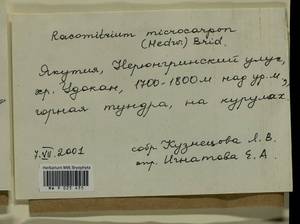 Racomitrium microcarpon
(Hedw.) Brid.
Якутия, Нерюнгринский улус,
хр. Удокан, 1700-1800м над ур.м.,
горная тундра, на курумах.
7.VII.2001
собр. Кузнецова Л.В.
опр. Игнатова Е.А.
Herbarium MW, Bryophyta
MW 9 025 495